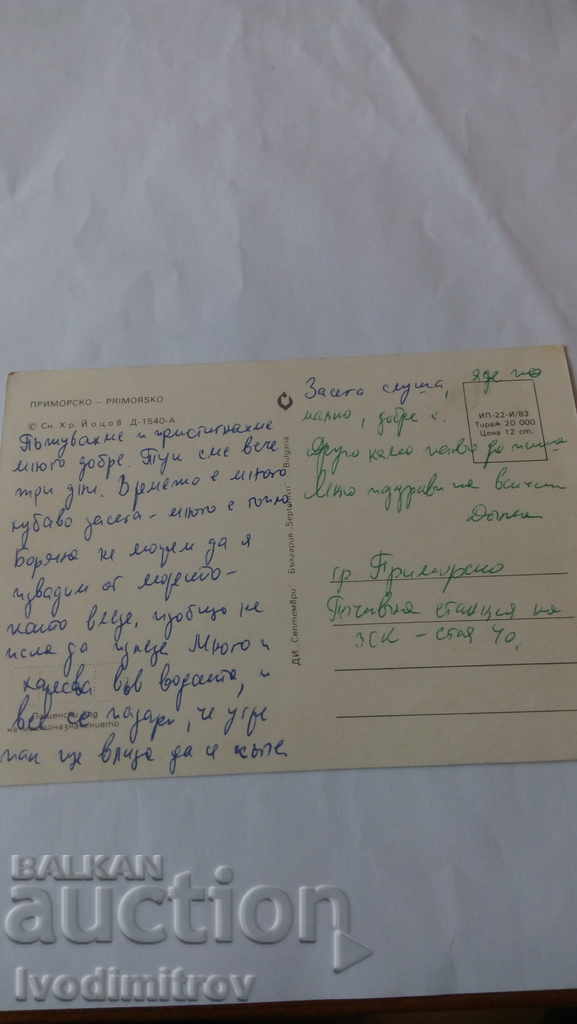 ПРИМОРСКО – PRIMORSKO
© Сн. Хр. Йоцов Д-1540-А
Пътувахме и пристигнахме
много добре. Тук сме вече
три дни. Времето е много
хубаво засега – много е топло
Боряна не можем да я
извадим от морето –
като влезе, изобщо не
иска да излезе Много и
харесва във водата, и
все се пазари, че утре
пак ще влиза да се къпе.
Пощенски код
на местоназначението
ДИ „Септември“ България Septemvri Bulgaria
Засега слуша, яде по
малко, добре е.
Друго какво да пиша
Много поздрави на всички
ИП-22-И/83
Тираж 20 000
Цена 12 ст.
гр Приморско
Почивна станция на
ЗСК – стая 40,
BALKAN
auction
Ivodimitrov